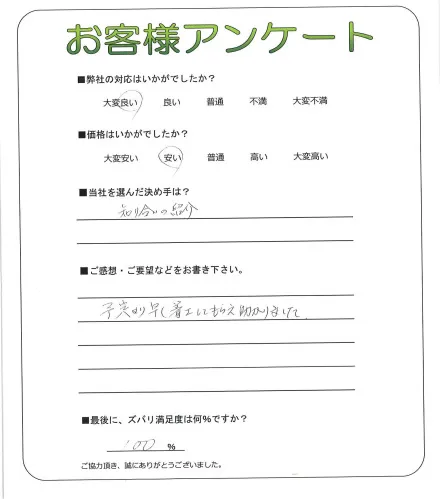 お客様アンケート
■弊社の対応はいかがでしたか？
大変良い 良い 普通 不満 大変不満
■価格はいかがでしたか？
大変安い 安い 普通 高い 大変高い
■当社を選んだ決め手は？
知り合いの紹介
■ご感想・ご要望などをお書き下さい。
予定より早く着工してもらえ助かりました
■最後に、ズバリ満足度は何%ですか？
100 %
ご協力頂き、誠にありがとうございました。